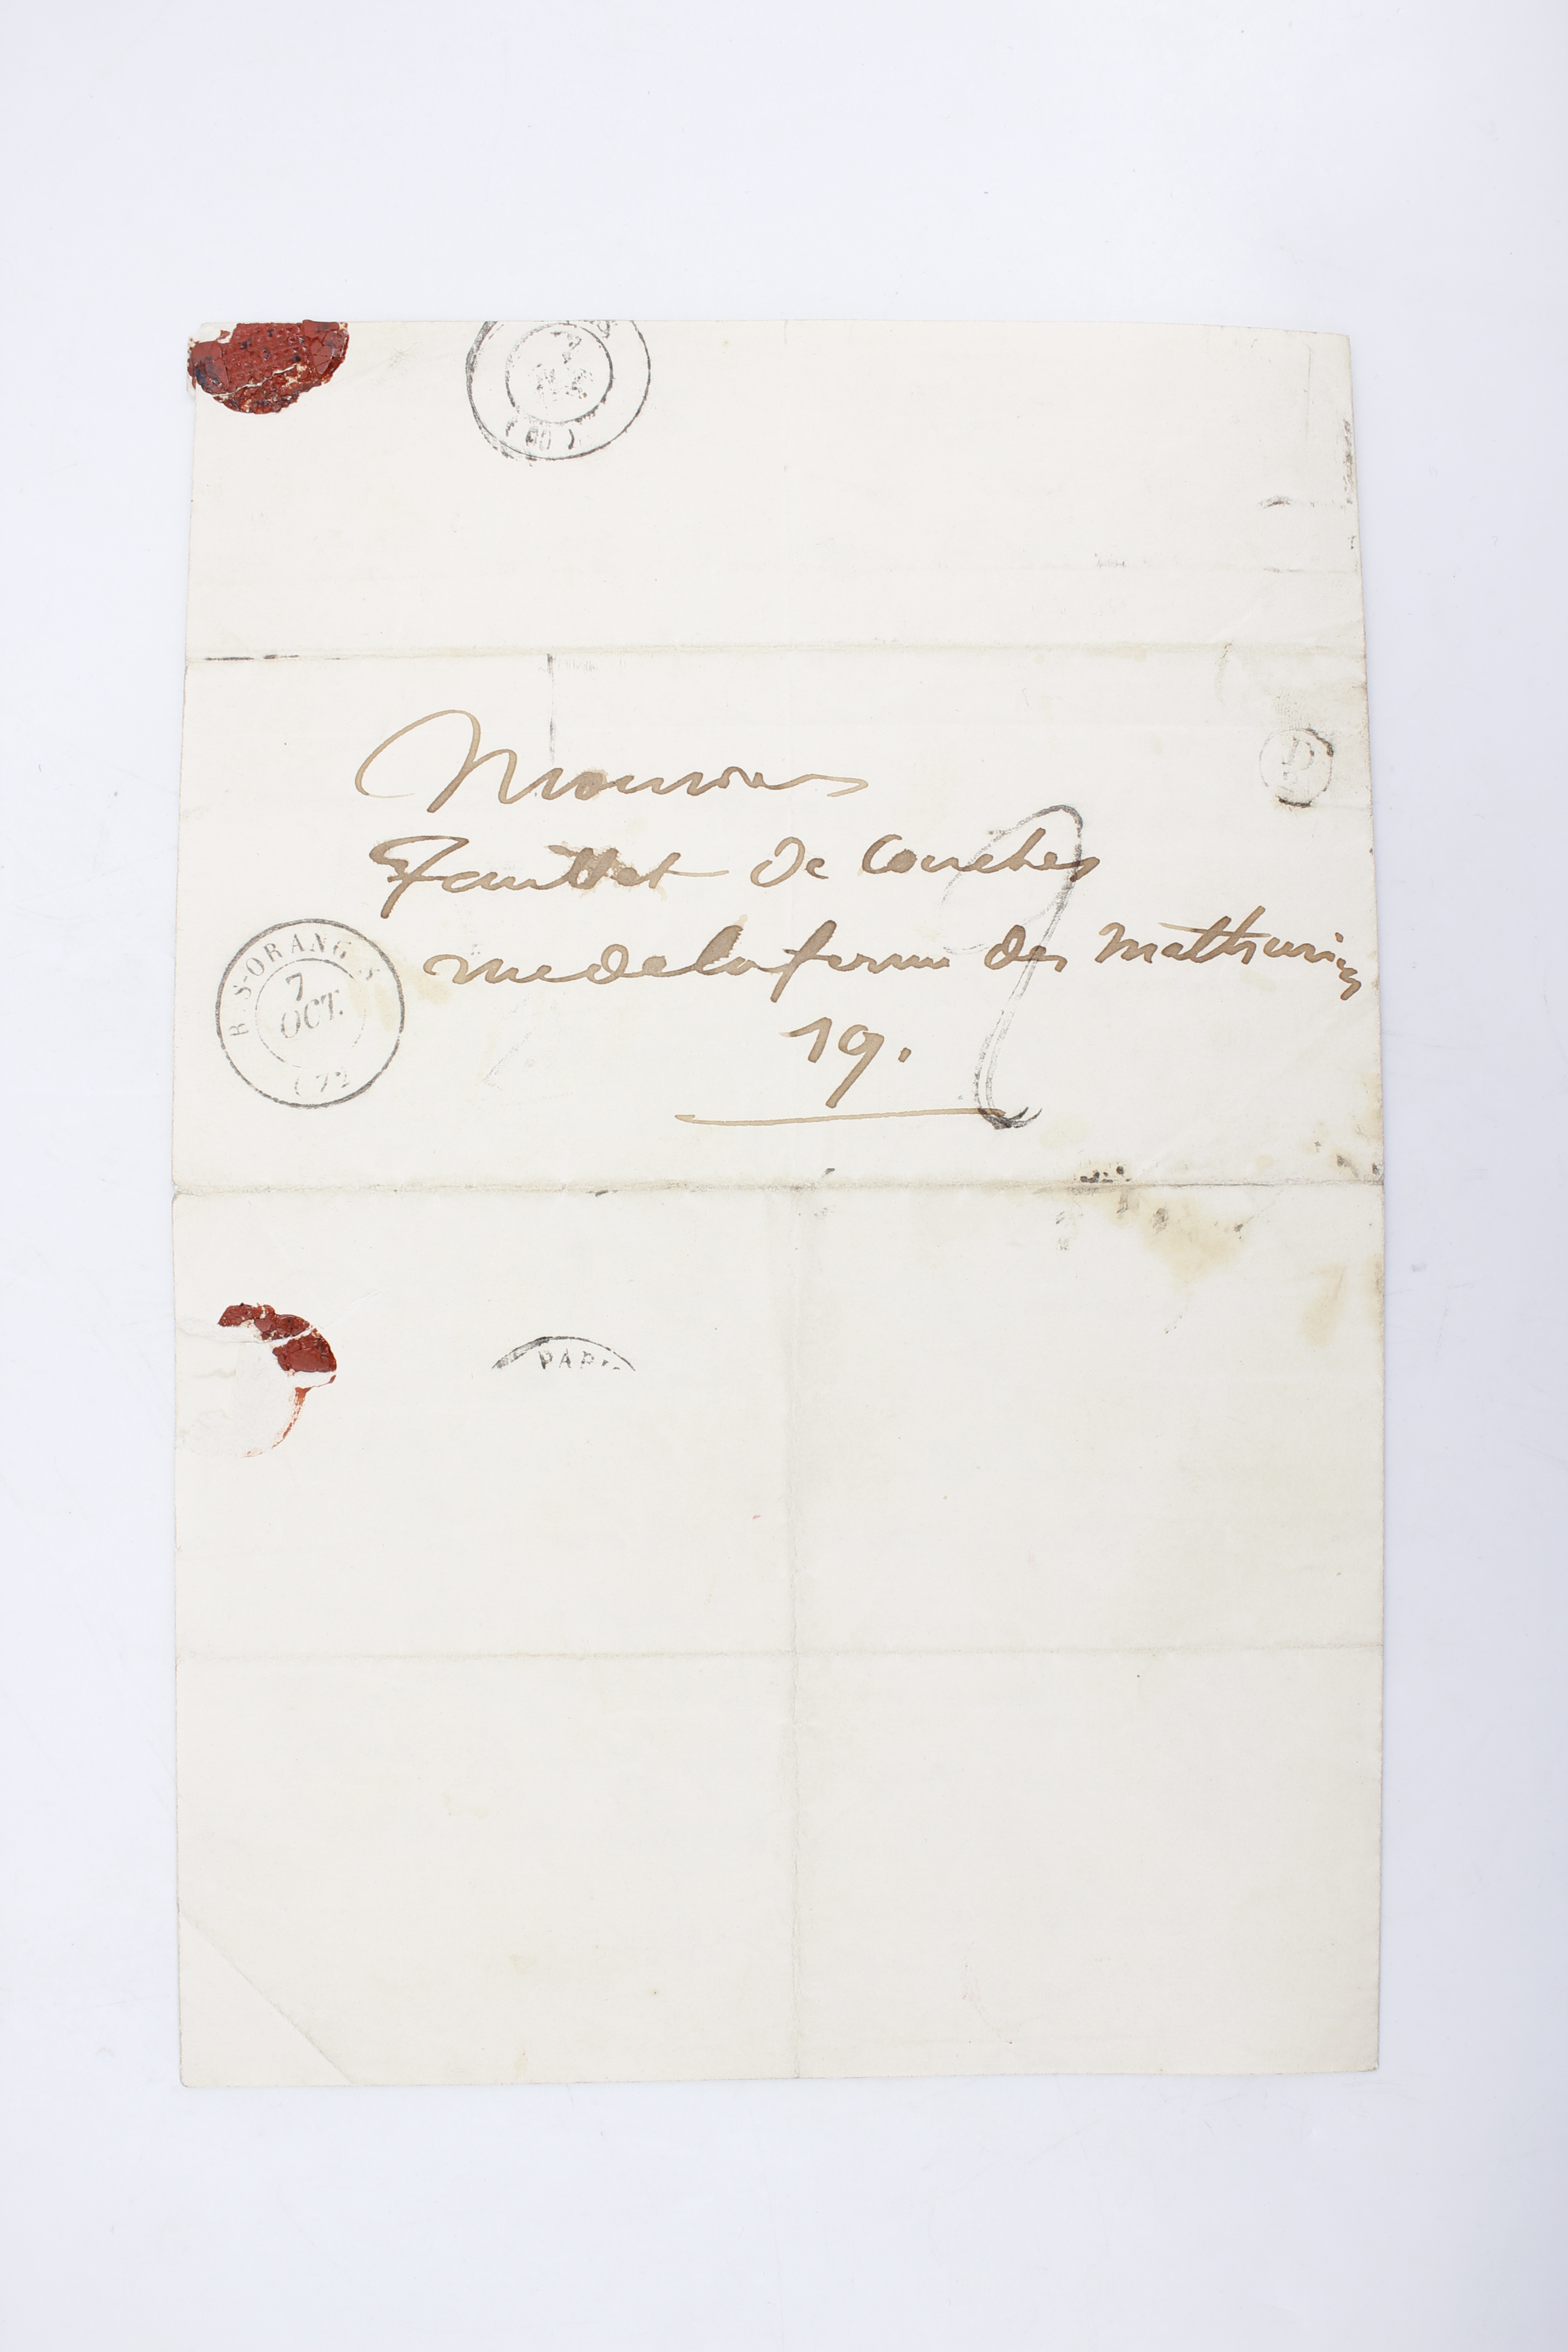 (60)
Monsieur
D
fauillet De Conches
rue de la ferme des Mathurins
R.-S-ORANGIS
7
OCT.
(72
19.
PARIS